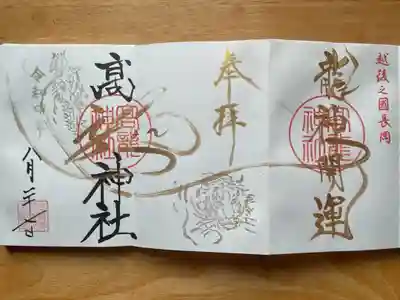 越後之國長岡
龍神開運
奉拝
高龍神社
令和四年
八月二十七日